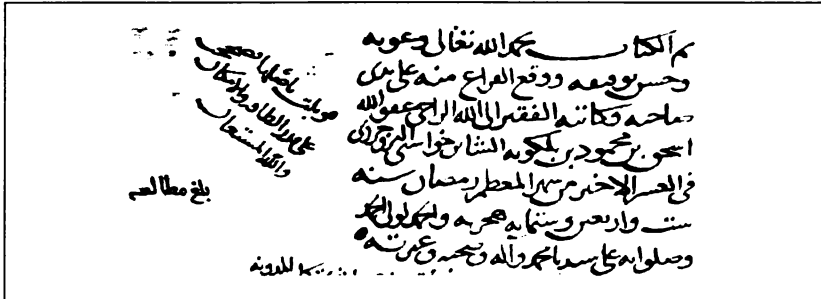 تم الكتاب بحمد الله تعالى وعونه
وحسن توفيقه ووقع الفراغ منه على يدي
صاحبه وكاتبه الفقير الى الله الراجي عفو الله
اسحق بن محمود بن بلكويه الشابرخواستي البروجردي
في العشر الاخير من شهر المعظم رمضان سنه
ست واربعين وستمايه هجريه والحمد لولي الحمد
وصلواته على سيدنا محمد وآله وصحبه وعترته
قوبلت باصلها
على قدر الطاقه والامكان
والله المستعان
بلغ مطالعه